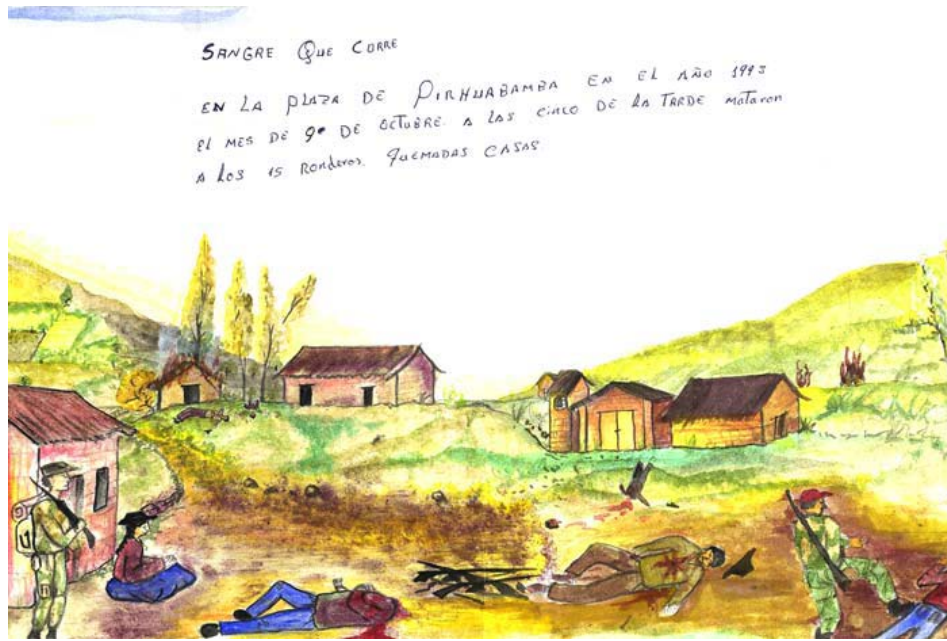 SANGRE QUE CORRE
EN LA PLAZA DE PIRHUABAMBA EN EL AÑO 1993
El MES DE 9º DE OCTUBRE. A LAS CINCO DE LA TARDE mataron
A Los 15 Ronderos. QUEMADAS CASAS